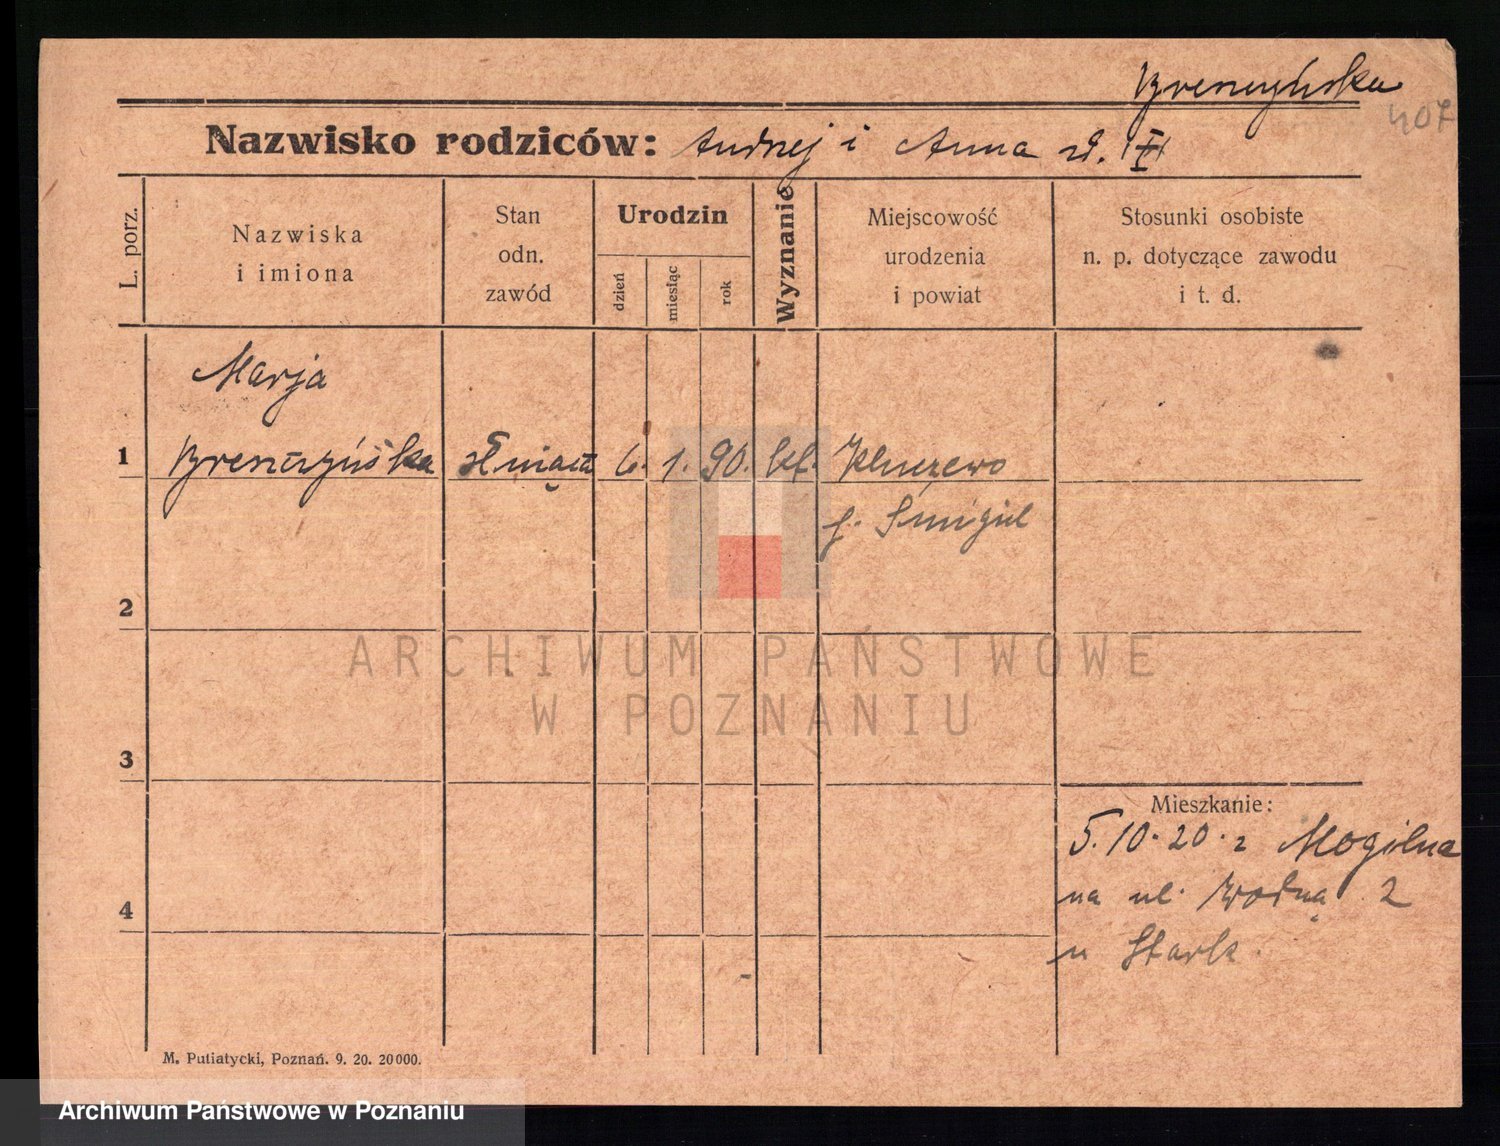 407
Nazwisko rodziców: Andrzej i Anna
L. porz.
Nazwiska
i imiona
Stan
odn.
zawód
Urodzin
dzień
miesiąc
rok
Wyznanie
Miejscowość
urodzenia
i powiat
Stosunki osobiste
n. p. dotyczące zawodu
i t. d.
Marja
1 6. 1. 90. kt.
Śmigiel
2
3
4
Mieszkanie:
5.10.20. z Mogilna
na ul. Wodną 2
u Stark.
ARCHIWUM PAŃSTWOWE
W POZNANIU
M. Putiatycki, Poznań. 9. 20. 20000.
Archiwum Państwowe w Poznaniu